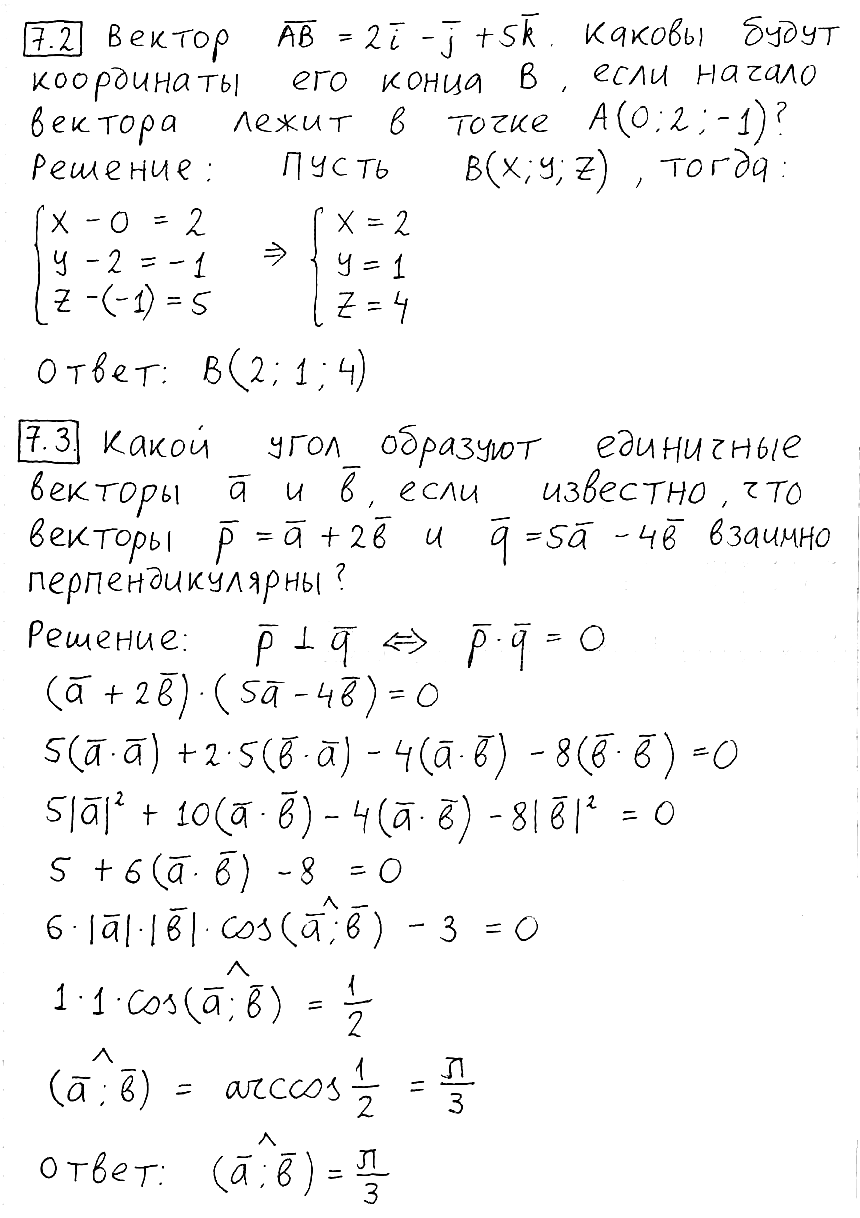 7.2 Вектор A̅B̅ = 2i̅ - j̅ + 5k̅. Каковы будут
координаты его конца B, если начало
вектора лежит в точке A(0; 2; -1)?
Решение: Пусть B(X; Y; Z), тогда:
{ X - 0 = 2 { X = 2
{ Y - 2 = -1 ⇒ { Y = 1
{ Z -(-1) = 5 { Z = 4
Ответ: B(2; 1; 4)
7.3. Какой угол образуют единичные
векторы a̅ и b̅, если известно, что
векторы p̅ = a̅ + 2b̅ и q̅ = 5a̅ - 4b̅ взаимно
перпендикулярны?
Решение: p̅ ⊥ q̅ ⇔ p̅ · q̅ = 0
(a̅ + 2b̅) · (5a̅ - 4b̅) = 0
5(a̅ · a̅) + 2 · 5(b̅ · a̅) - 4(a̅ · b̅) - 8(b̅ · b̅) = 0
5|a̅|² + 10(a̅ · b̅) - 4(a̅ · b̅) - 8|b̅|² = 0
5 + 6(a̅ · b̅) - 8 = 0
6 · |a̅| · |b̅| · cos(a̅ ^; b̅) - 3 = 0
1 · 1 · cos(a̅ ^; b̅) = 1/2
(a̅ ^; b̅) = arccos 1/2 = π/3
Ответ: (a̅ ^; b̅) = π/3